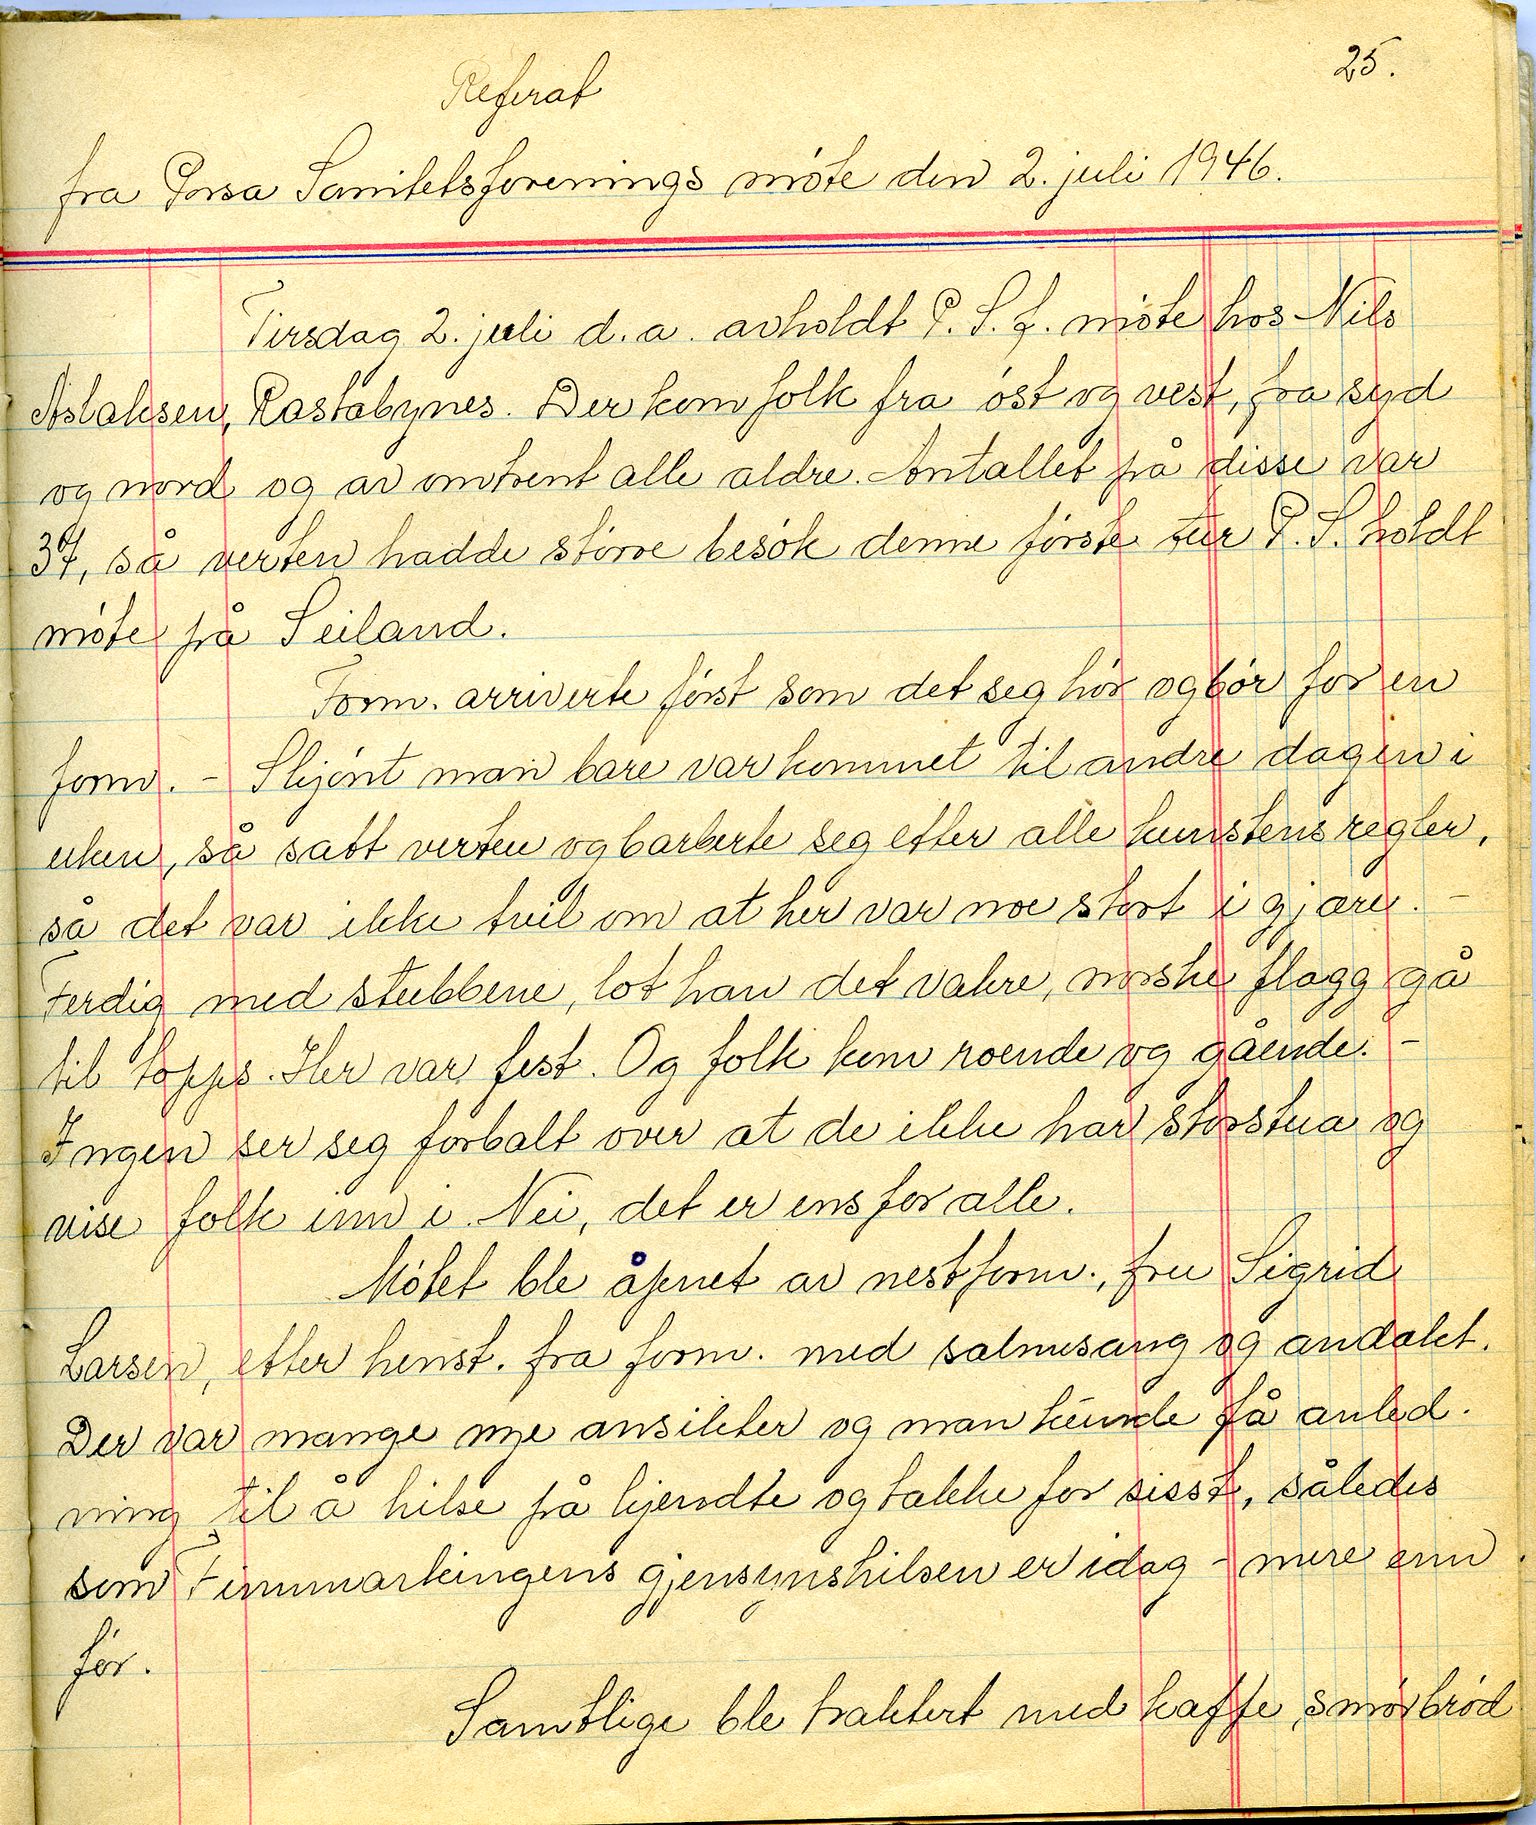 25.
Referat
fra Porsa Sanitetsforenings móte den 2. juli 1946.
Tirsdag 2. juli d. a. avholdt P. S. f. móte hos Nils
Aslaksen, Rastabynes. Der kom folk fra óst og vest, fra syd
og nord og av omtrent alle aldre. Antallet på disse var
37, så verten hadde störve besók denne förste tur P. S. holdt
móte på Seiland.
Form. arriverte fórst som det seg hór og bór for en
form. - Skjónt man bare var kommet til andre dagen i
uken, så satt verten og barberte seg etter alle kunstens regler,
så det var ikke tvil om at her var noe stort i gjære. -
Ferdig med stubbene, lot han det vakre, norske flagg gå
til topps. Her var fest. Og folk kom roende og gående. -
Ingen ser seg forbalt over at de ikke har storstua og
vise folk inn i. Nei, det er ens for alle.
Mótet ble åpnet av nestform., fru Sigrid
Larsen, etter henst. fra form. med salmesang og andakt.
Der var mange nye ansikter og man kunde få anled-
ning til å hilse på kjendte og takke for sisst, således
som Finnmarkingens gjensynshilsen er idag - mere enn
fór.
Samtlige ble traktert med kaffe, smórbród